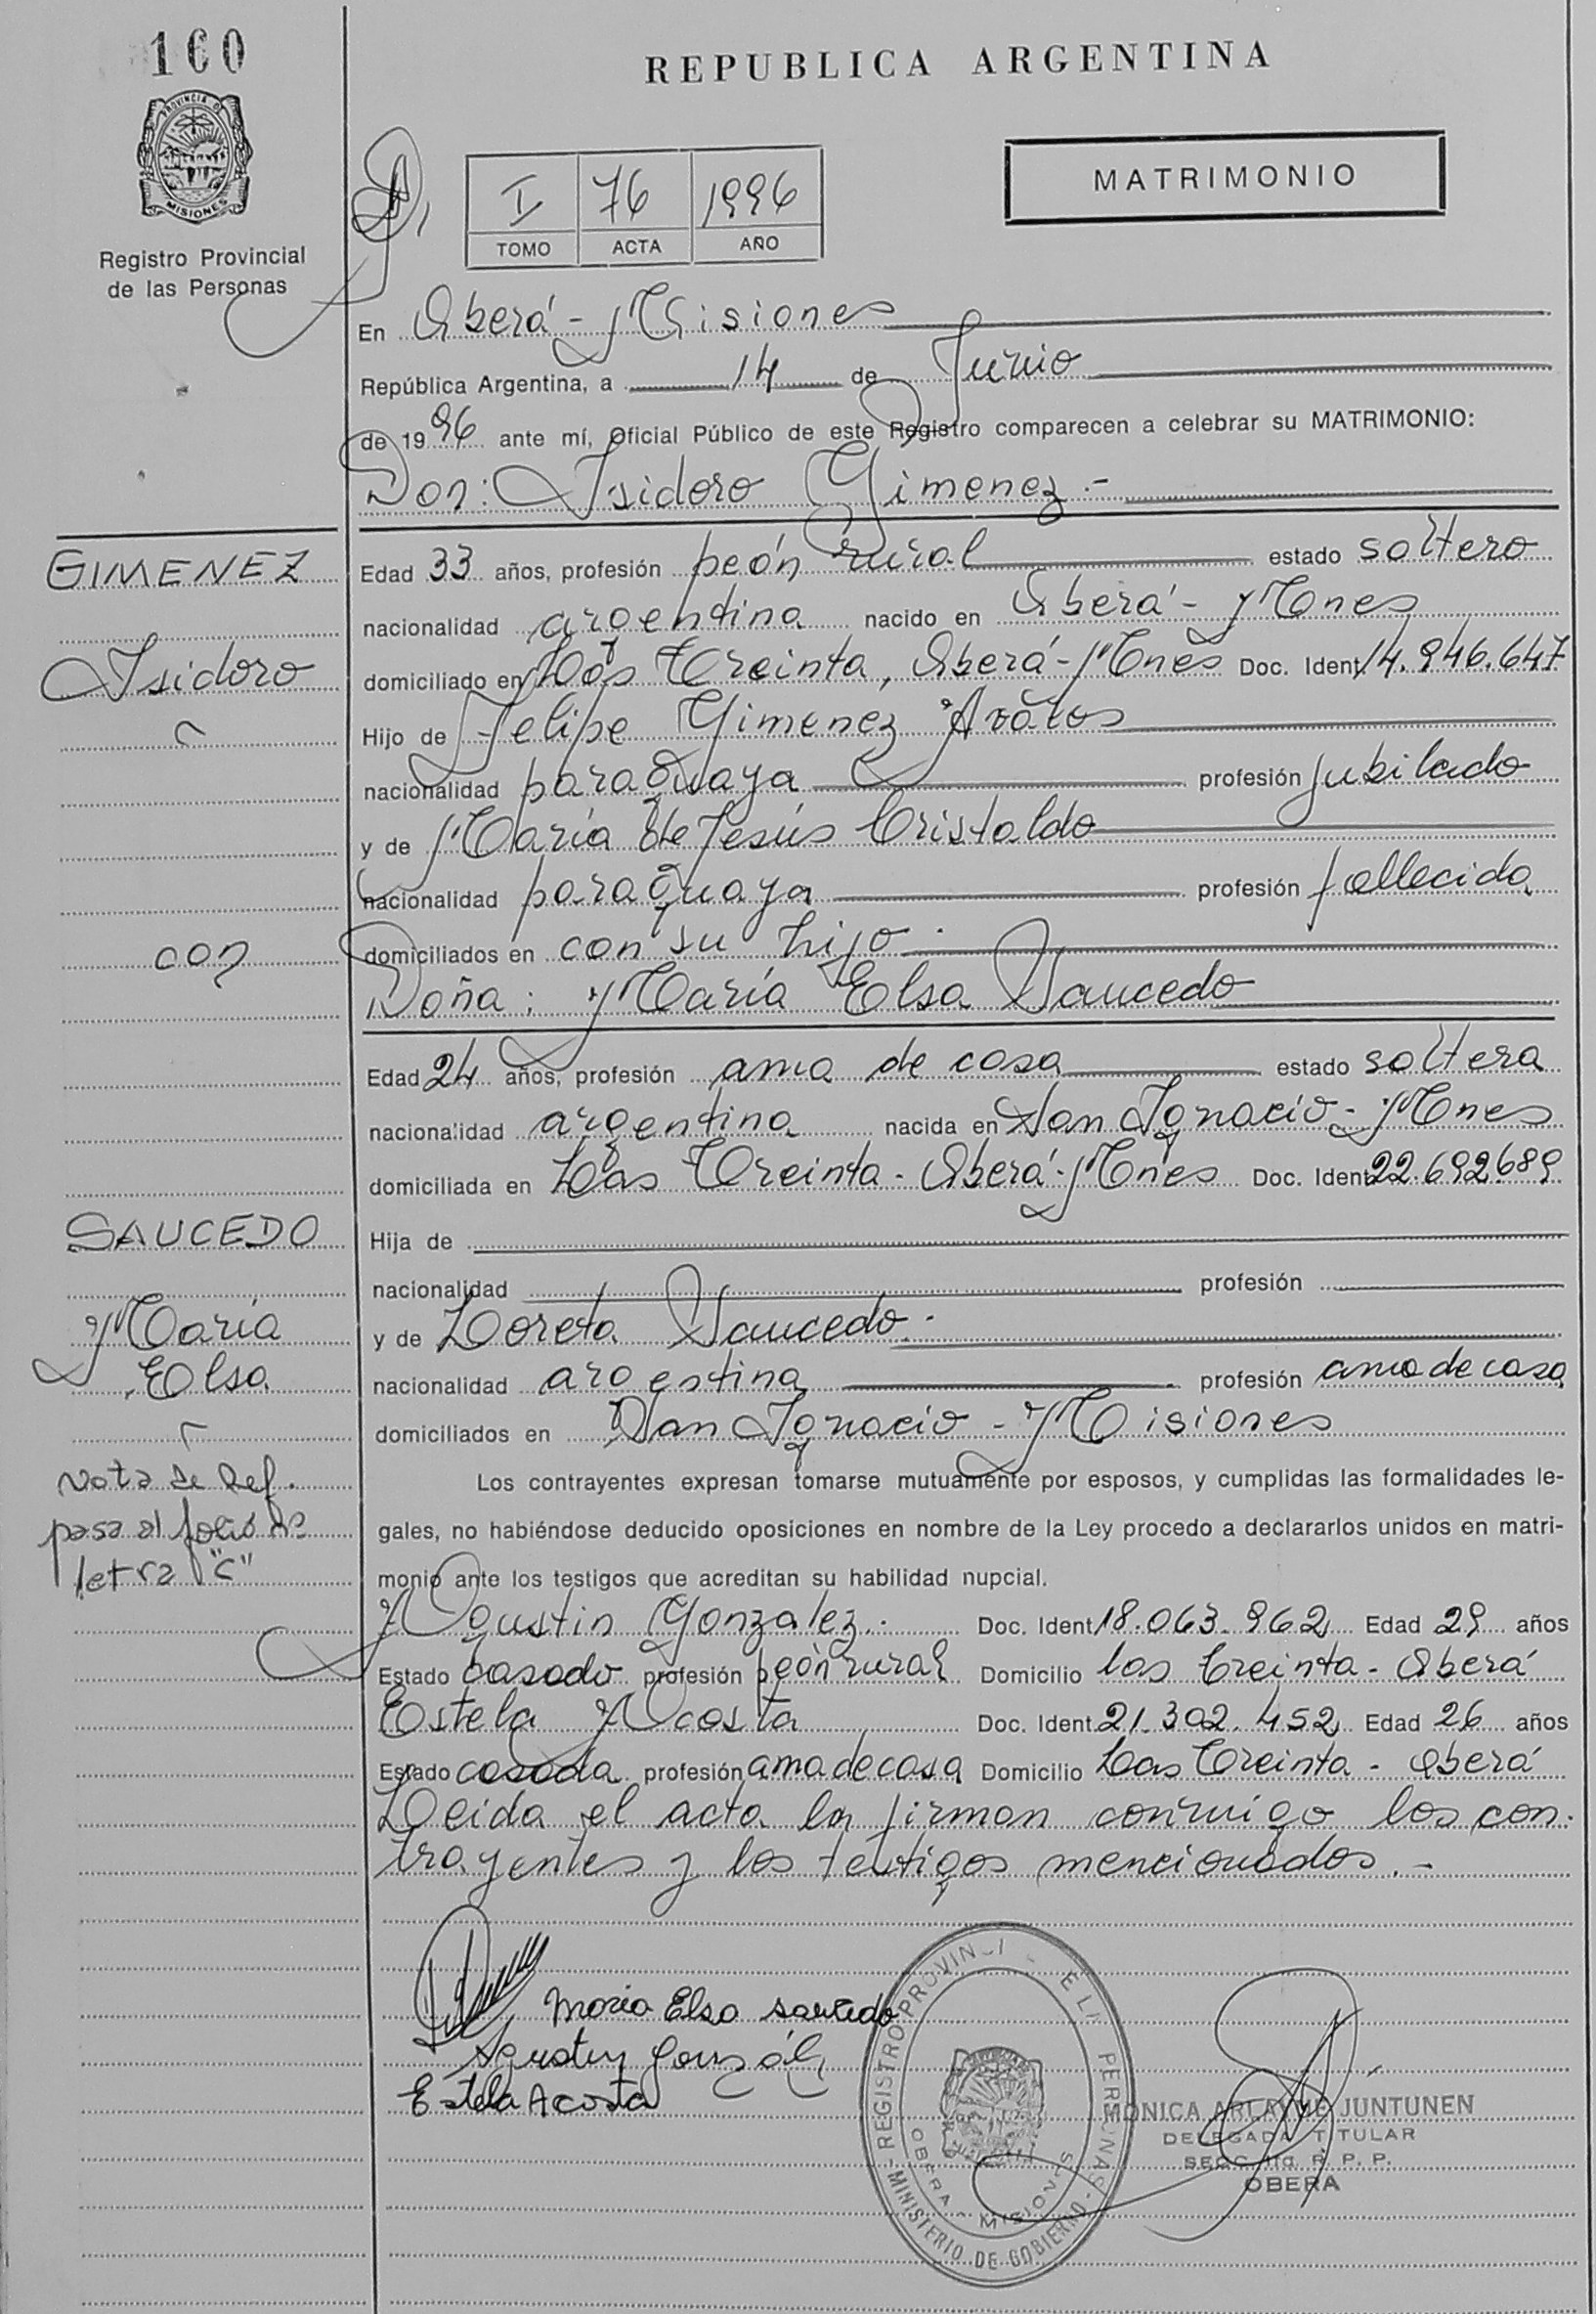 160
REPUBLICA ARGENTINA
PROVINCIA D
MISIONES
Registro Provincial
de las Personas
I 76 1996
TOMO ACTA AÑO
MATRIMONIO
En Oberá - Misiones
República Argentina, a 14 de Junio
de 1996 ante mí, Oficial Público de este Registro comparecen a celebrar su MATRIMONIO:
Don: Isidoro Gimenez.-
GIMENEZ
Isidoro
Edad 33 años, profesión peón rural estado soltero
nacionalidad argentina nacido en Oberá - Mnes
domiciliado en Los Treinta, Oberá - Mnes Doc. Ident 14.946.647
Hijo de Felipe Gimenez Avalos
nacionalidad paraguaya profesión jubilado
y de María de Jesús Cristaldo
nacionalidad paraguaya profesión fallecida
domiciliados en con su hijo.
con
Doña: María Elsa Saucedo
Edad 24 años, profesión ama de casa estado soltera
nacionalidad argentina nacida en San Ignacio - Mnes
domiciliada en Las Treinta - Oberá - Mnes Doc. Ident 22.692689
SAUCEDO
María
Elsa
Hija de
nacionalidad profesión
y de Loreta Saucedo.-
nacionalidad argentina profesión ama de casa
domiciliados en San Ignacio - Misiones
nota de Ref.
pasa al folio de
letra "C"
Los contrayentes expresan tomarse mutuamente por esposos, y cumplidas las formalidades le-
gales, no habiéndose deducido oposiciones en nombre de la Ley procedo a declararlos unidos en matri-
monio ante los testigos que acreditan su habilidad nupcial.
Agustin Gonzalez.- Doc. Ident 18.063.962 Edad 29 años
Estado casado profesión peón rural Domicilio las treinta - Oberá
Estela Acosta Doc. Ident. 21.302.452 Edad 26 años
Estado casada profesión ama de casa Domicilio Las Treinta - Oberá
Leida el acta la firman conmigo los con-
trayentes y los testigos mencionados.-
Maria Elsa Saucedo
Agustin Gonzalez
Estela Acosta
REGISTRO PROVINCI E LA PERSONAS
MINISTERIO DE GOBIERNO
OBERA - MISIONES
MONICA JUNTUNEN
DELEGADA TITULAR
SECC. R. P. P.
OBERA